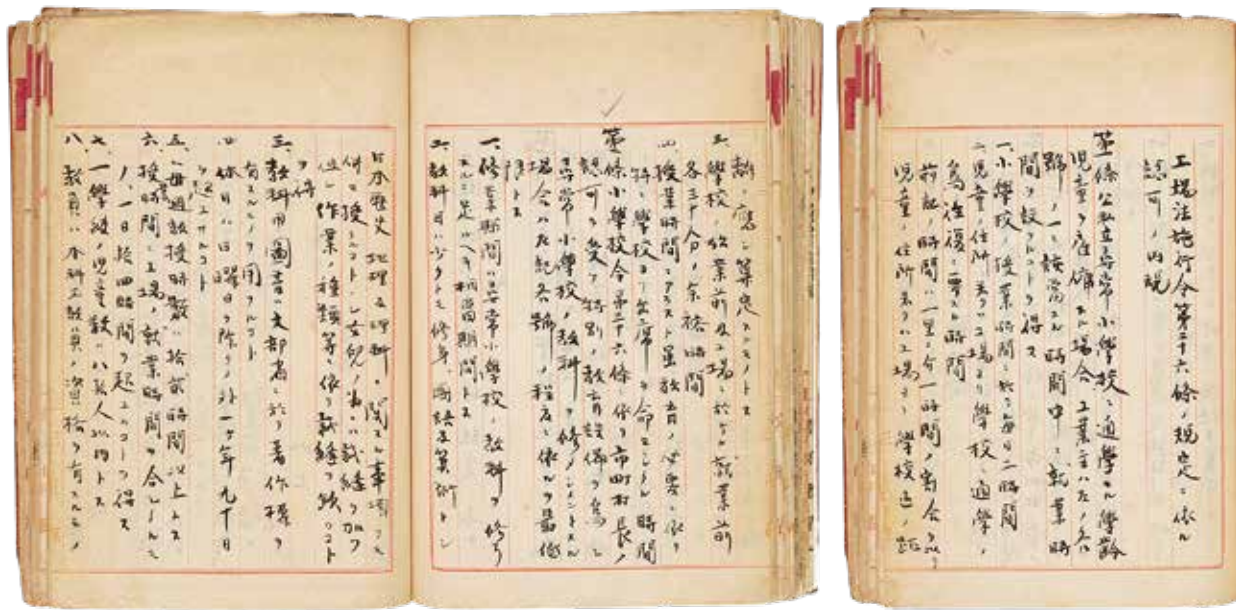 工場法施行令第二十六條ノ規定ニ依ル
認可ノ内規
第一條公私立尋常小學校ニ通學スル學齡
児童ヲ雇傭スル場合工業主ハ左ノ各
號ノ一ニ該當スル時間中ニ就業時
間ヲ設クルコトヲ得ス
一、小學校ノ授業時間ニ於テ毎日二時間
二、児童ノ住所若クハ工場ヨリ學校ニ通學ノ
為往復ニ要スル時間
前記ノ時間ハ一里ニ付一時間ノ割合ヲ以テ
児童ノ住所若クハ工場ヨリ學校迄ノ距
離ニ應シ算定スルモノトス
三、學校ノ始業前及工場ニ於ケル就業前
各三十分ノ余裕時間
四、授業時間ニアラスト雖教育ノ必要ニ依リ
特ニ學校ヨリ出席ヲ命セラレタル時間
第二條小學校令第三十六條ニ依リ市町村長ノ
認可ヲ受ケ特別ノ教育設備ヲ為シ
尋常小學校ノ教科ヲ修メシメントスル
場合ハ左記各號ノ程度ニ依ルヲ最低
限トス
一、修業期間ハ尋常小學校ノ教科ヲ修了
スルニ足ルヘキ相當期間トス
二、教科目ハ少クトモ修身、國語及算術トシ
日本歴史、地理及理科ニ関スル事項ヲモ
併セ授クルコトシ女兒ノ為ニハ裁縫ヲ加フ
但シ作業ノ種類等ニ依リ裁縫ヲ缺クコト
ヲ得
三、教科用圖書ハ文部省ニ於テ著作權ヲ
有スルモノヲ用フルコト
四、休日ハ日曜日ヲ除クノ外一ケ年九十日
ヲ超エサルコト
五、毎週教授時數ハ拾貳時間以上トス
六、授業時間ト工場ノ就業時間ヲ合シタルモ
ノハ一日拾四時間ヲ超エルコトヲ得ス
七、一學級ノ児童數ハ八拾人以内トス
八、教員ハ本科正教員ノ資格ヲ有スルモノ